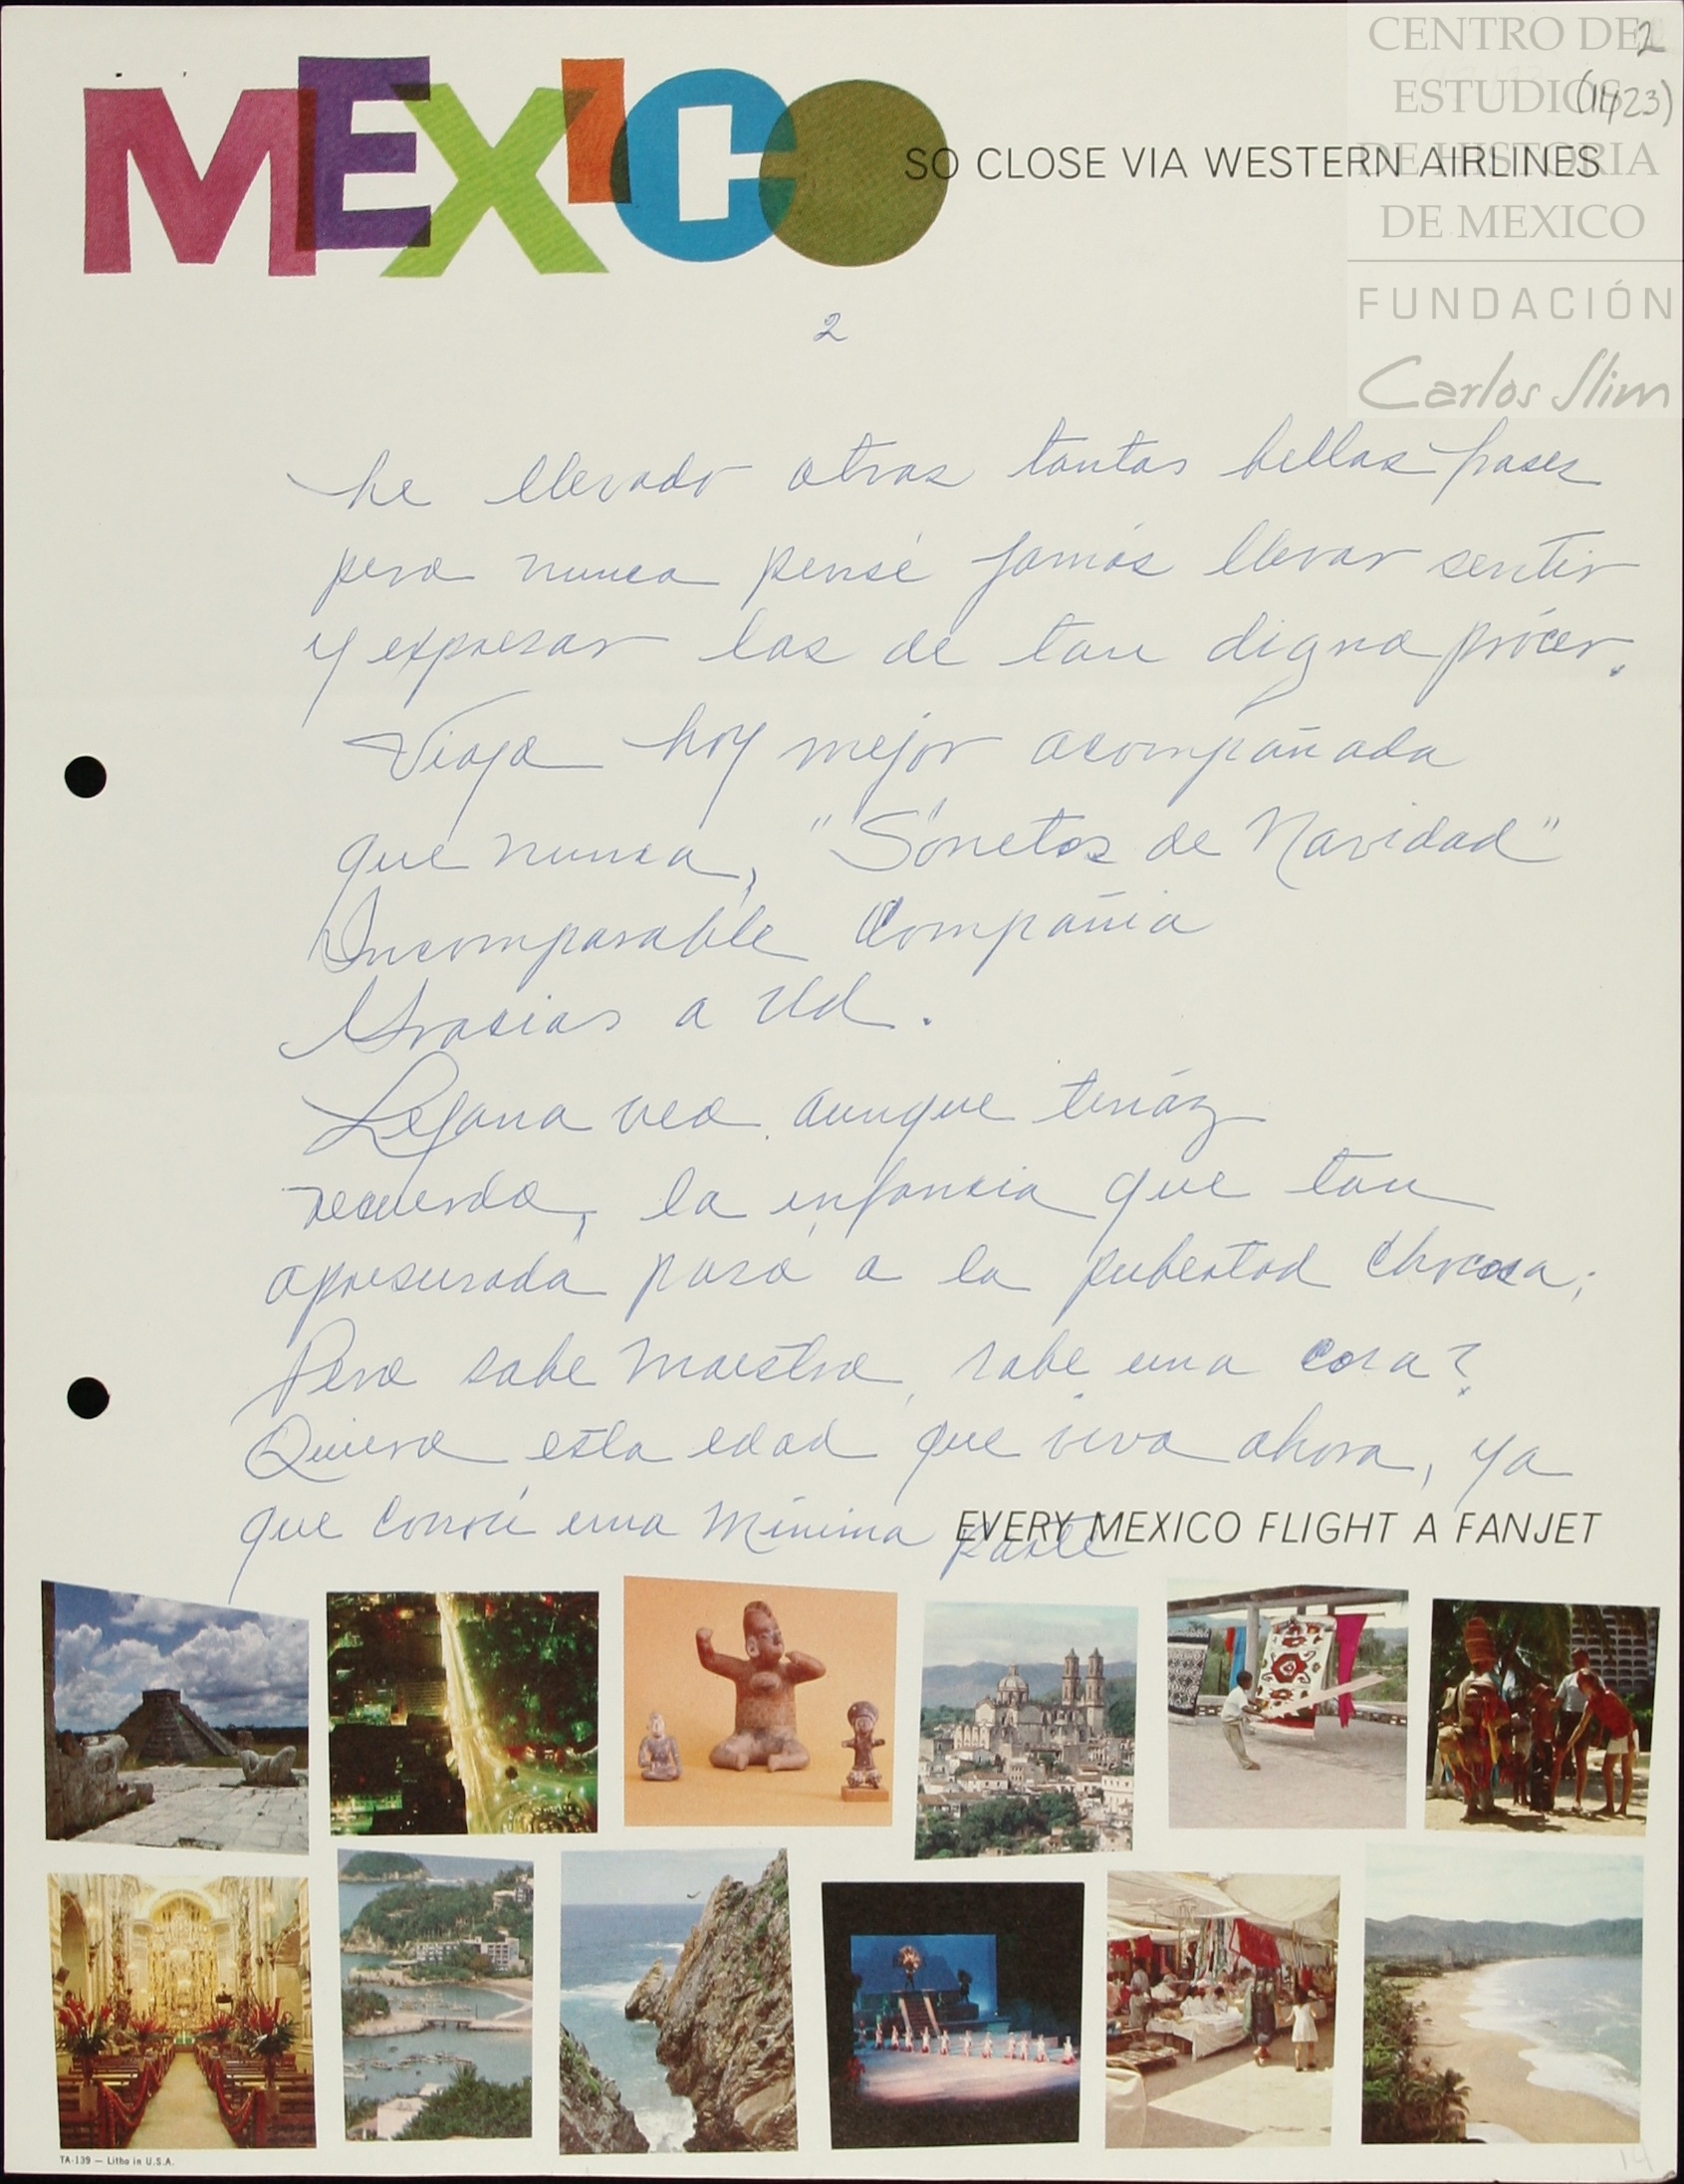 CENTRO DE
ESTUDIOS
DE HISTORIA
DE MEXICO
FUNDACIÓN
Carlos Slim
2
(1423)
MEXICO
SO CLOSE VIA WESTERN AIRLINES
2
he llevado otras tantas bellas frases
pero nunca pensé jamás llevar sentir
y expresar las de tan digno prócer.
Viajo hoy mejor acompañada
que nunca, "Sonetos de Navidad"
Incomparable Compañia
Gracias a Ud.
Lejana veo aunque tenáz
recuerdo, la infancia que tan
apresurada pasó a la pubertad
Pero sabe maestro, sabe una cosa?
Quiero esta edad que vivo ahora, ya
que conocí una mínima parte
EVERY MEXICO FLIGHT A FANJET
TA-139 — Litho in U.S.A.
14